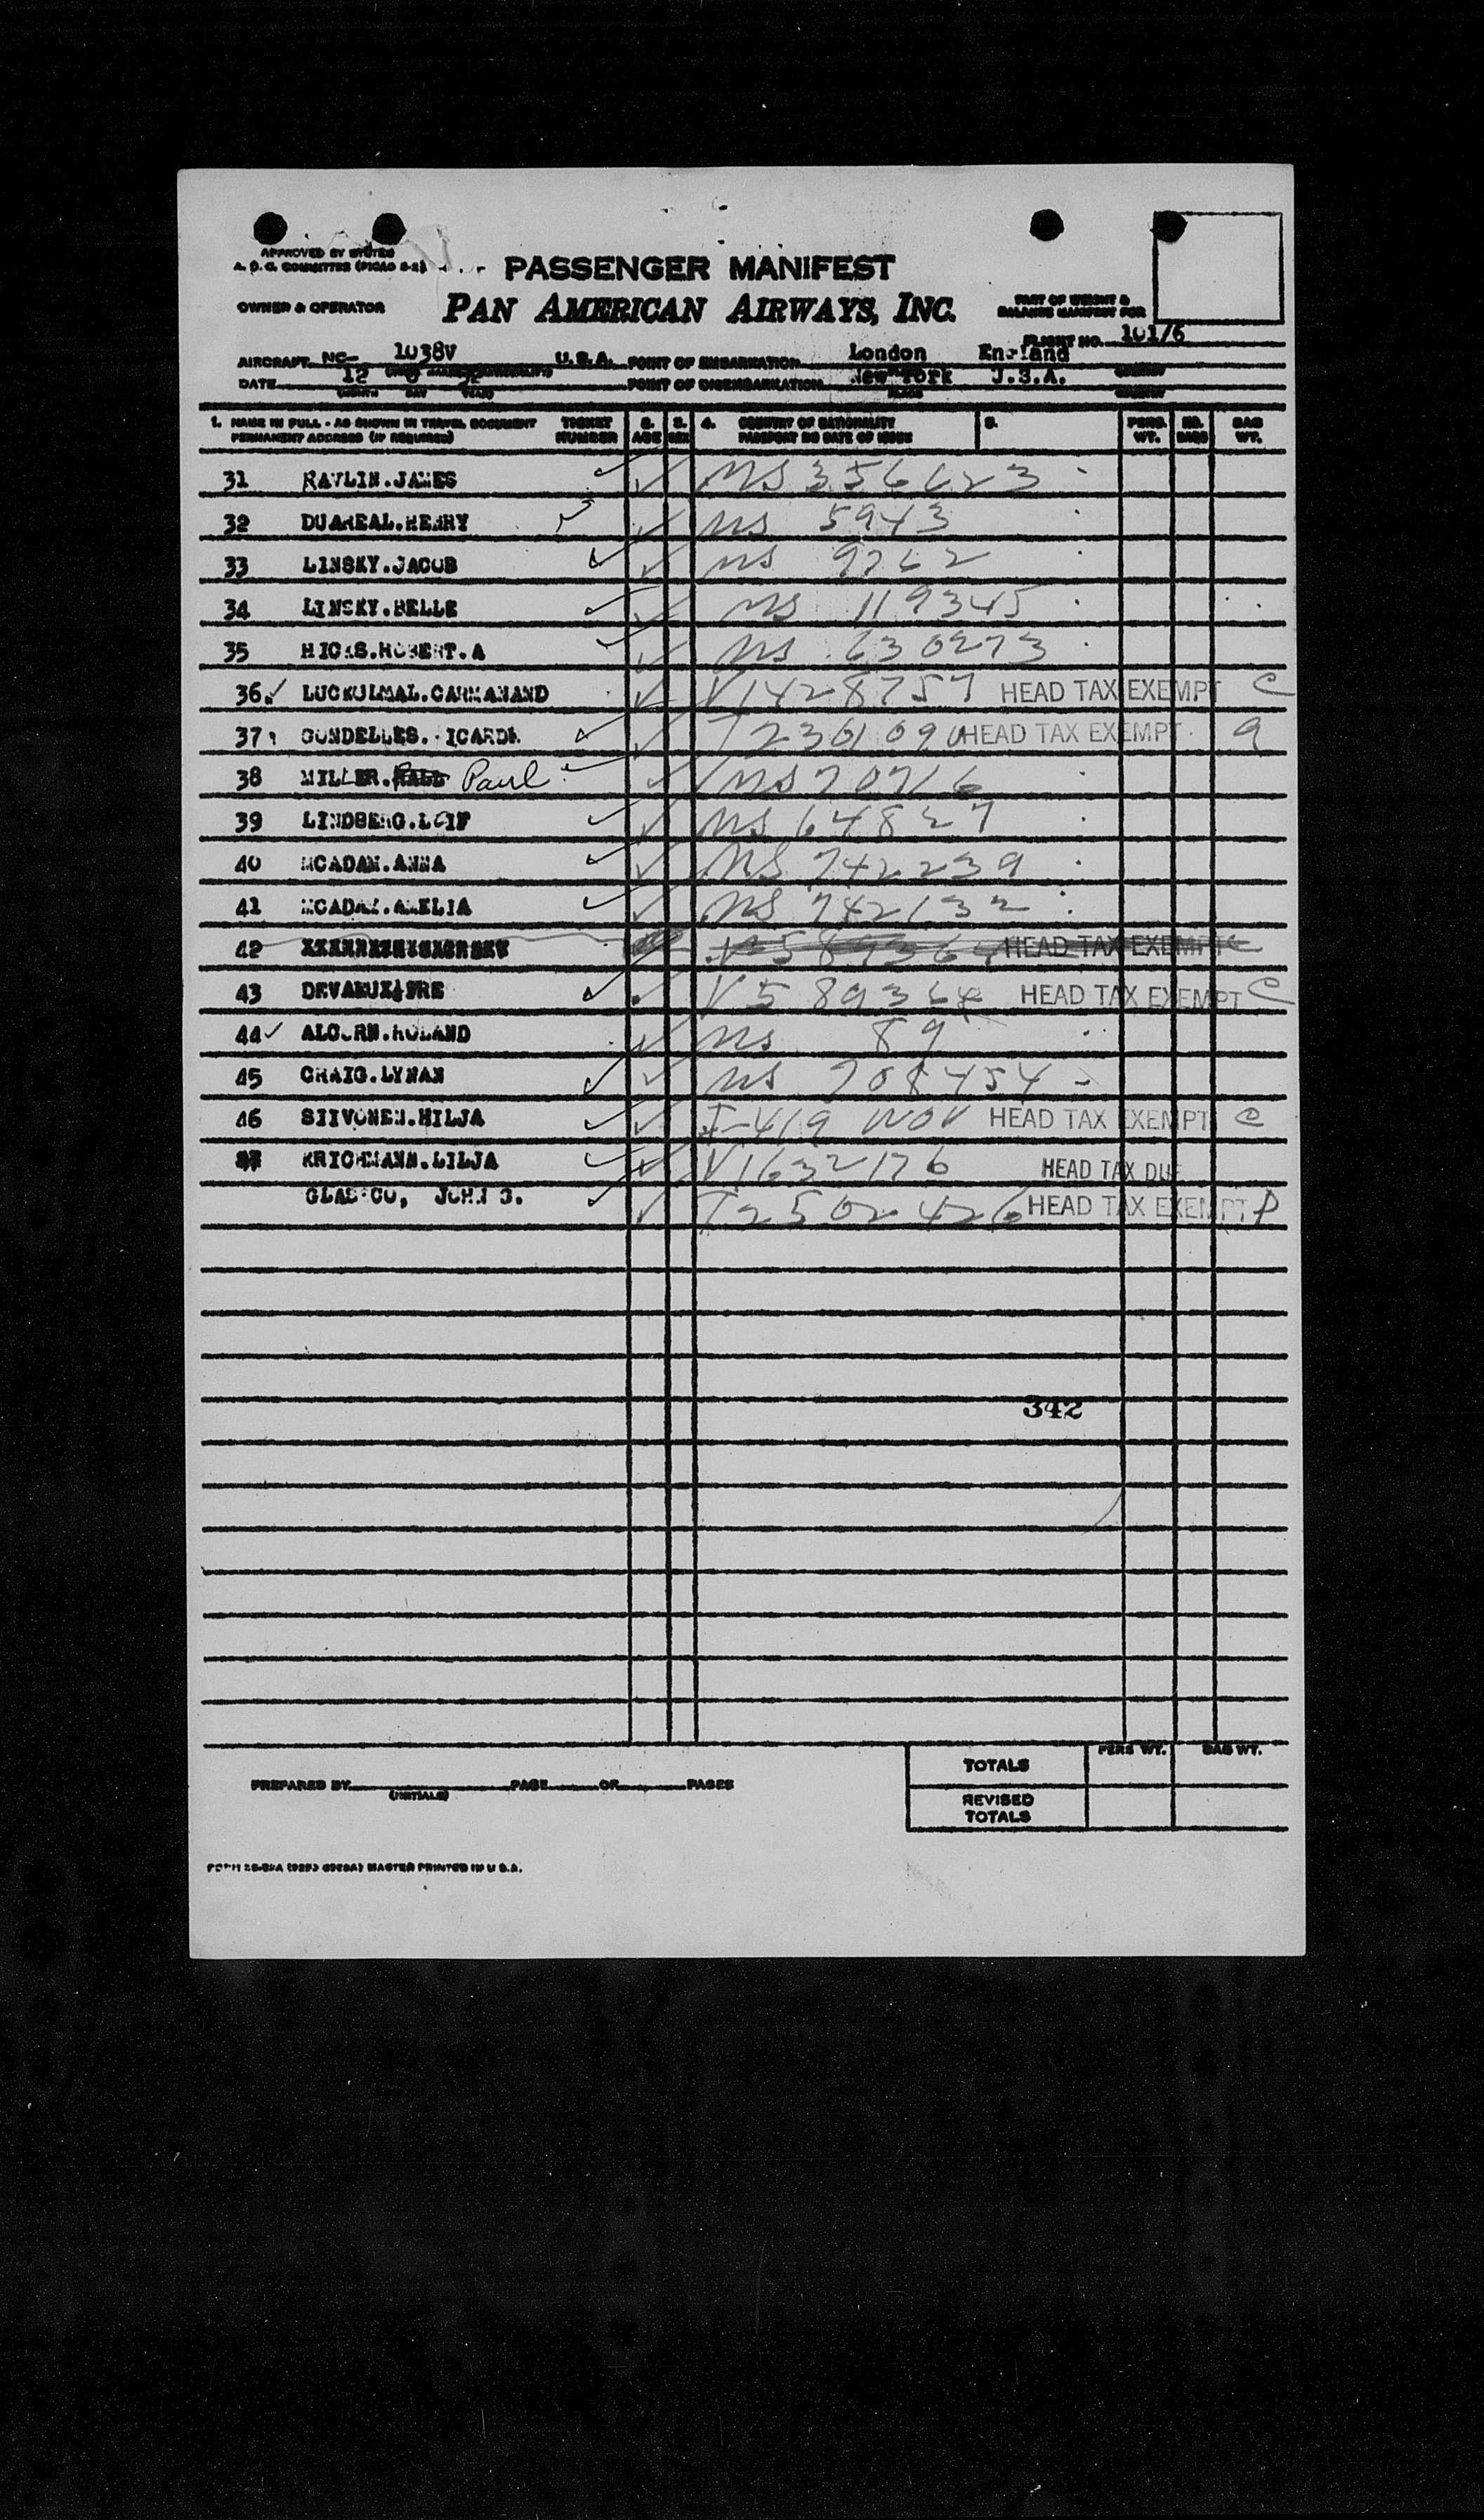 APPROVED BY STATES
A. D. C. COMMITTEE (PICAO 2-2)
PASSENGER MANIFEST
OWNER & OPERATOR
PAN AMERICAN AIRWAYS, INC.
PART OF WEIGHT &
BALANCE MANIFEST FOR
FLIGHT NO. 101/6
AIRCRAFT NC- 1038V U.S.A. POINT OF EMBARKATION London England
DATE 12 POINT OF DISEMBARKATION New York U.S.A.
1. NAME IN FULL - AS SHOWN IN TRAVEL DOCUMENT TICKET 2. 3. 4. COUNTRY OF NATIONALITY 5. PERS. NO. BAG
PERMANENT ADDRESS (IF REQUIRED) NUMBER AGE SEX PASSPORT NO DATE OF ISSUE WT. BAGS WT.
31 RAVLIN.JAMES MS 356623
32 DUAREAL.HENRY MS 5943
33 LINSKY.JACOB MS 9762
34 LINSKY.BELLE MS 119345
35 HICKS.ROBERT.A MS 630273
36 LUCKULMAL.CARMANAND V1428757 HEAD TAX EXEMPT C
37 T 2361090 HEAD TAX EXEMPT 9
38 MILLER. Paul MS 70716
39 LINDBERG.LEIF MS 64827
40 MCADAM.ANNA MS 742239
41 MCADAM.AMELIA MS 742132
42 V 589364 HEAD TAX EXEMPT C
43 V 589364 HEAD TAX EXEMPT C
44 ALCORN.ROLAND MS 89
45 CRAIG.LYMAN MS 708454
46 SIIVONEN.HILJA I-419 NOV HEAD TAX EXEMPT C
47 KRICHMANN.LILJA V1632176 HEAD TAX DUE
GLASSCO, JOHN G. T2502426 HEAD TAX EXEMPT P
342
TOTALS PERS WT. BAG WT.
PREPARED BY (INITIALS) PAGE OF PAGES
REVISED
TOTALS
MASTER PRINTED IN U.S.A.